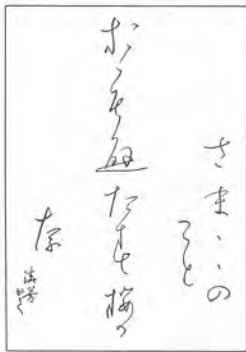 さまゝゝの
こと
おもひ出たす桜か
な